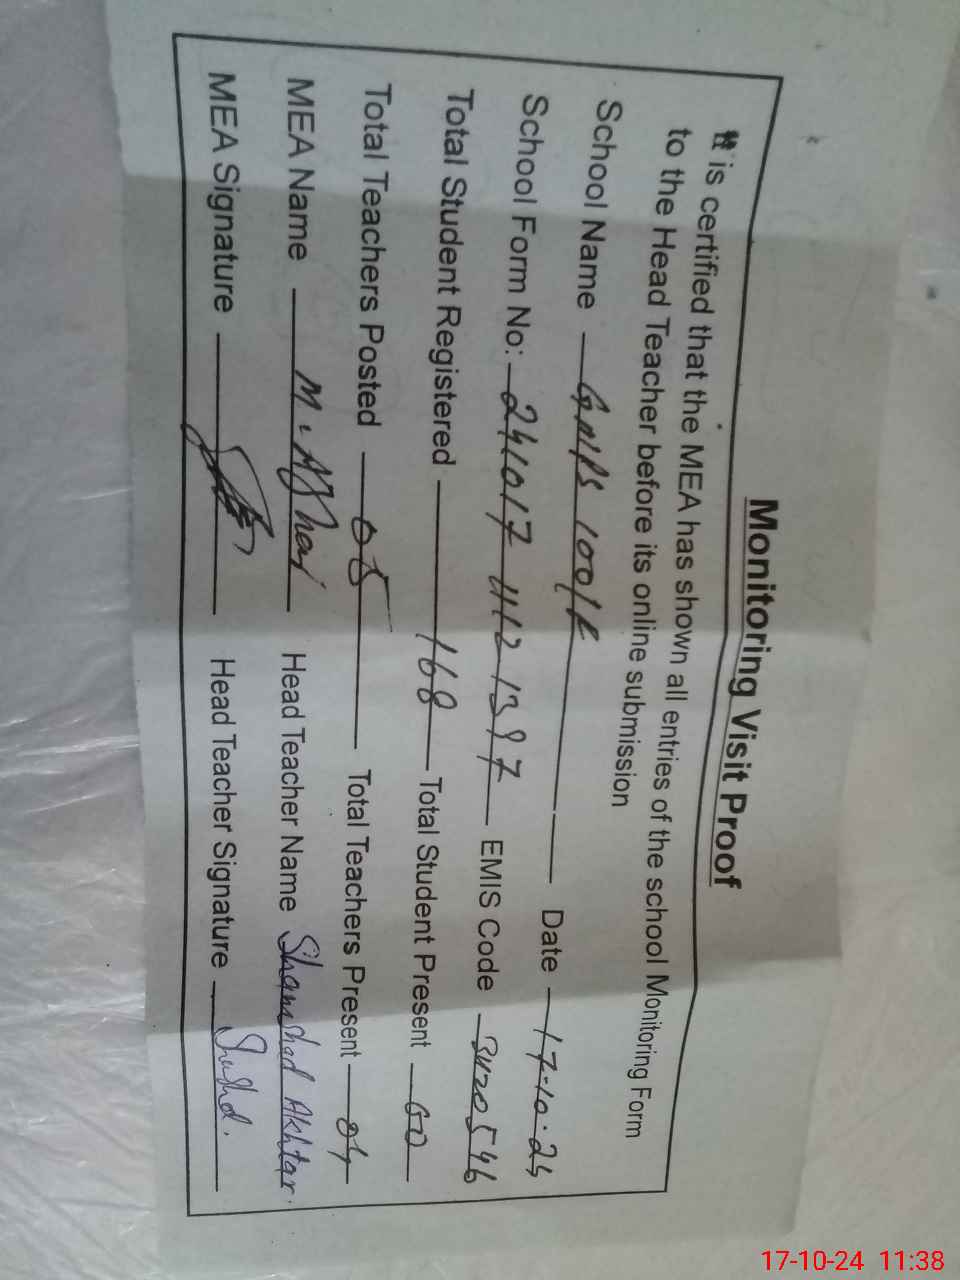 Monitoring Visit Proof
It is certified that the MEA has shown all entries of the school Monitoring Form
to the Head Teacher before its online submission
School Name Date 17-10-24
School Form No: EMIS Code
Total Student Registered 168 Total Student Present 60
Total Teachers Posted 05 Total Teachers Present 04
MEA Name Head Teacher Name Shamshad Akhtar.
MEA Signature Head Teacher Signature
17-10-24 11:38